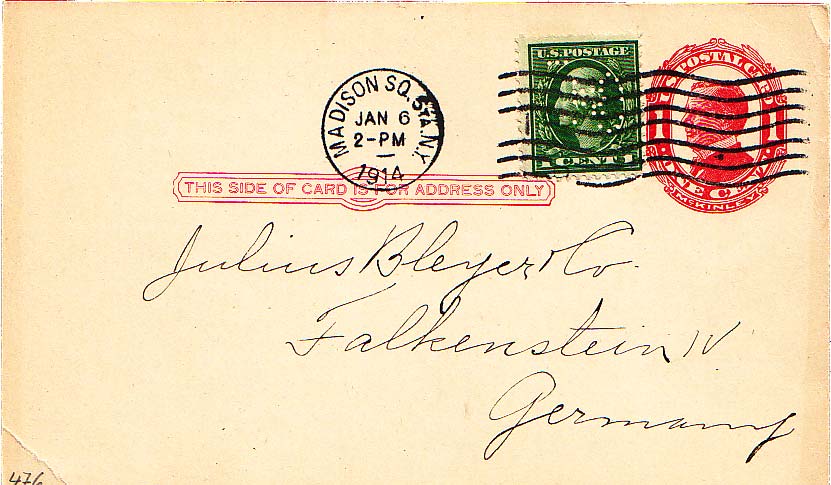 MADISON SQ. STA. N.Y.
JAN 6
2-PM
1914
U.S. POSTAGE
1 CENT 1
U.S. POSTAL CARD
1 1
ONE CENT
McKINLEY
THIS SIDE OF CARD IS FOR ADDRESS ONLY
Julius Bleyer & Co.
Falkenstein IV
Germany
476